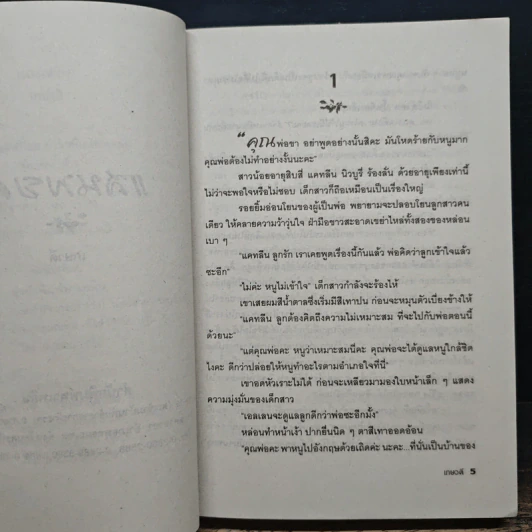 1
"คุณพ่อขา อย่าพูดอย่างนั้นสิคะ มันโหดร้ายกับหนูมาก
คุณพ่อต้องไม่ทำอย่างงั้นนะคะ"
สาวน้อยอายุสิบสี่ แคทลีน นิวบูรี ร้องลั่น ด้วยอายุเพียงเท่านี้
ไม่ว่าจะพอใจหรือไม่ชอบ เด็กสาวก็ถือเหมือนเป็นเรื่องใหญ่
รอยยิ้มอ่อนโยนของผู้เป็นพ่อ พยายามจะปลอบโยนลูกสาวคน
เดียว ให้คลายความว้าวุ่นใจ ฝ่ามือขาวสะอาดเขย่าไหล่ทั้งสองของหล่อน
เบา ๆ
"แคทลีน ลูกรัก เราเคยพูดเรื่องนี้กันแล้ว พ่อคิดว่าลูกเข้าใจแล้ว
ซะอีก"
"ไม่ค่ะ หนูไม่เข้าใจ" เด็กสาวกำลังจะร้องไห้
เขาเสยผมสีน้ำตาลซึ่งเริ่มมีสีเทาปน ก่อนจะหมุนตัวเบี่ยงข้างให้
"แคทลีน ลูกต้องคิดถึงความไม่เหมาะสม ที่จะไปกับพ่อตอนนี้
ด้วยนะ"
"แต่คุณพ่อคะ หนูว่าเหมาะสมนี่คะ คุณพ่อจะได้ดูแลหนูใกล้ชิด
ไงคะ ดีกว่าปล่อยให้หนูทำอะไรตามอำเภอใจที่นี่"
เขาอดหัวเราะไม่ได้ ก่อนจะเหลียวมามองใบหน้าเล็ก ๆ แสดง
ความมุ่งมั่นของเด็กสาว
"เอลเลนจะดูแลลูกดีกว่าพ่อซะอีกมั้ง"
หล่อนทำหน้าเง้า ปากยื่นนิด ๆ ตาสีเทาออดอ้อน
"คุณพ่อคะ พาหนูไปอังกฤษด้วยเถิดค่ะ นะคะ...ที่นั่นเป็นบ้านของ
เกษวดี 5